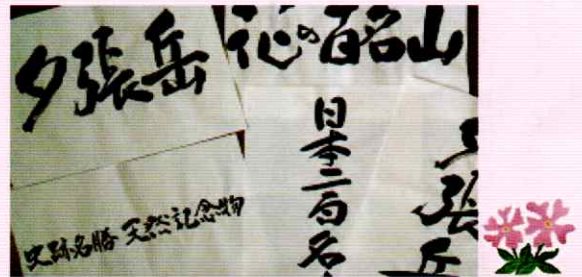 夕張岳
花の百名山
史跡名勝 天然記念物
日本二百名山
夕張岳